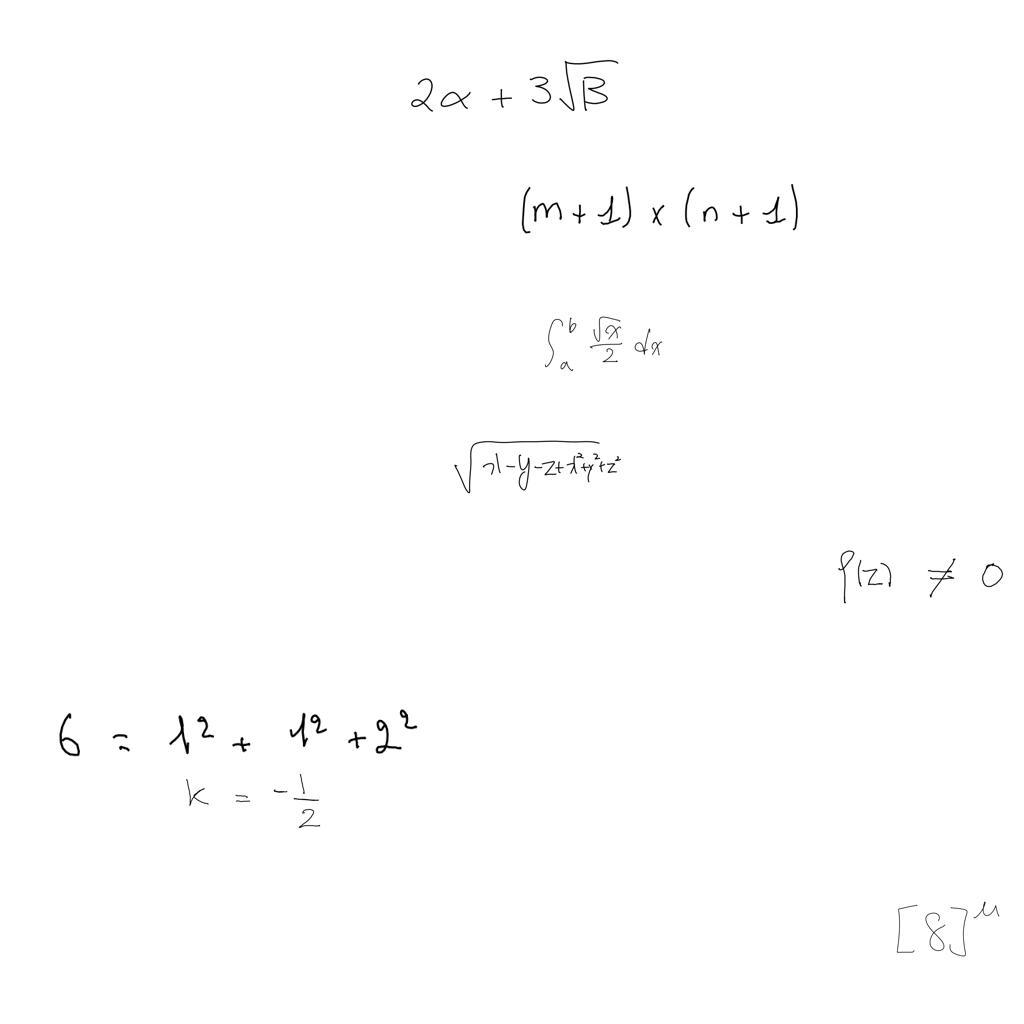 2α + 3√B
(m + 1) × (n + 1)
∫_a^b √x/2 dx
√(x - y - z + x² + y² + z²)
f(z) ≠ 0
6 = 1² + 1² + 2²
k = -1/2
[8]^μ